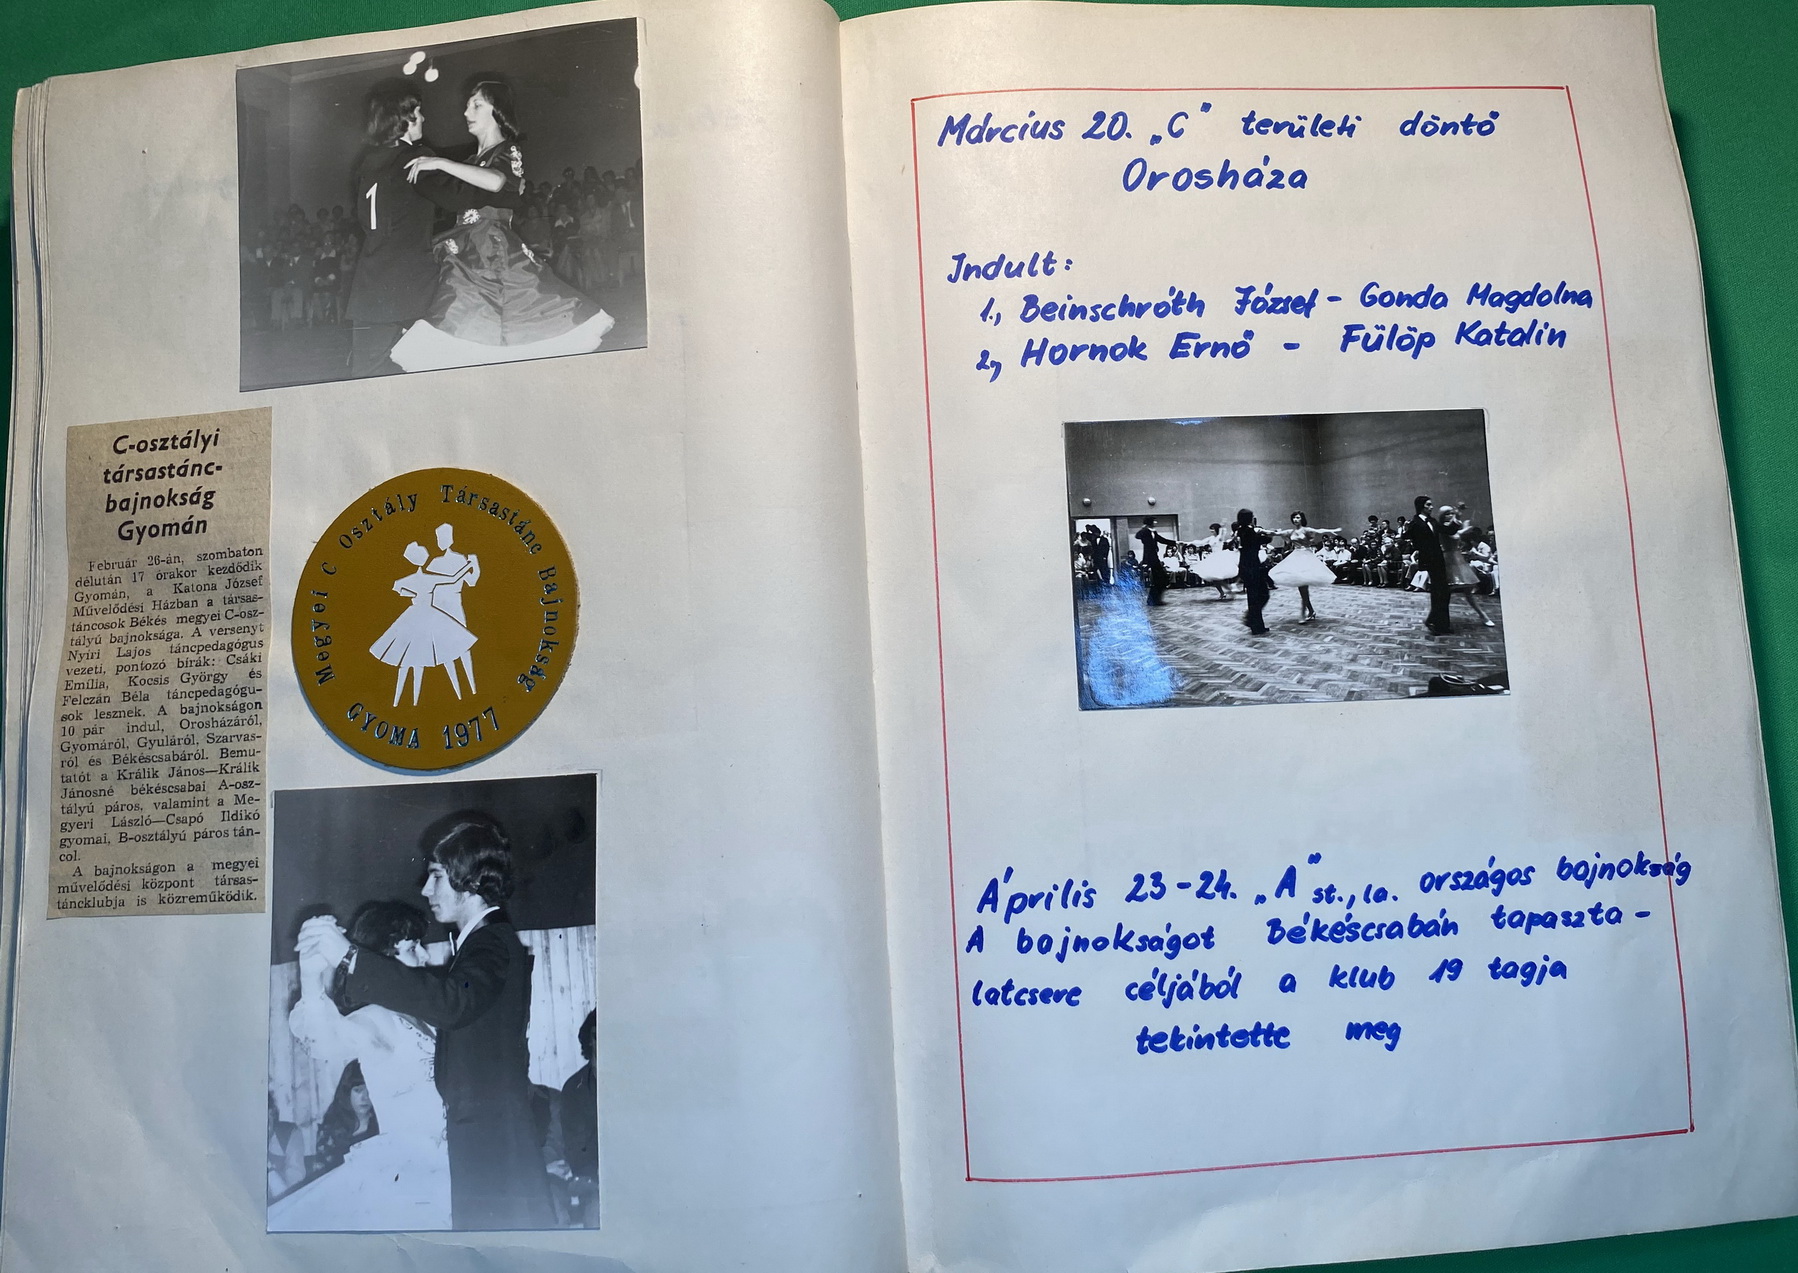 1
C-osztályi
társastánc-
bajnokság
Gyomán
Február 26-án, szombaton
délután 17 órakor kezdődik
Gyomán, a Katona József
Művelődési Házban a társas-
táncosok Békés megyei C-osz-
tályú bajnoksága. A versenyt
Nyíri Lajos táncpedagógus
vezeti, pontozó bírák: Csáki
Emília, Kocsis György és
Felczán Béla táncpedagógu-
sok lesznek. A bajnokságon
10 pár indul, Orosházáról,
Gyomáról, Gyuláról, Szarvas-
ról és Békéscsabáról. Bemu-
tatót a Králik János—Králik
Jánosné békéscsabai A-osz-
tályú páros, valamint a Me-
gyeri László—Csapó Ildikó
gyomai, B-osztályú páros tán-
col.
A bajnokságon a megyei
művelődési központ társas-
táncklubja is közreműködik.
Megyei C Osztály Társastánc Bajnokság
GYOMA 1977
Március 20. „C" területi döntő
Orosháza
Indult:
1., Beinschróth József - Gonda Magdolna
2., Hornok Ernő - Fülöp Katalin
Április 23-24. „A" st., la. országos bajnokság
A bajnokságot Békéscsabán tapaszta-
latcsere céljából a klub 19 tagja
tekintette meg